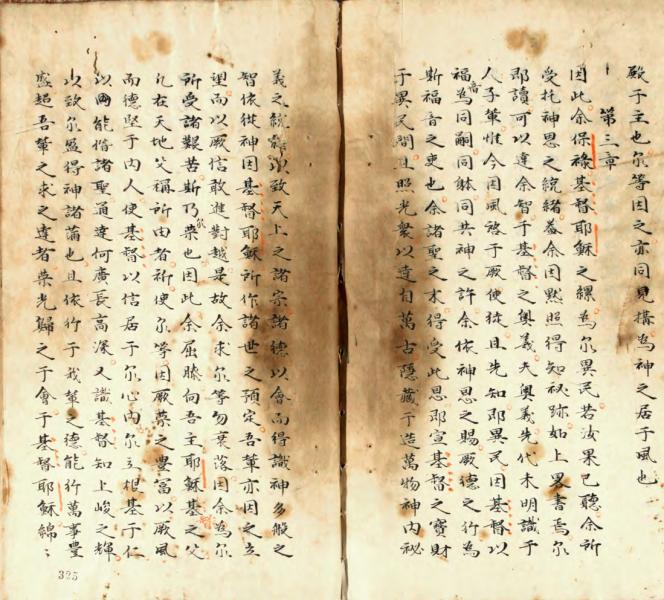 殿于主也尔等因之亦同見搆為神之居于風也
第三章
因此余保祿基督耶穌之縲為尔異民若汝果已聽余所
受托神恩之統緒蓋余因默照得知祕跡如上畧書焉尔
即讀可以達余智于基督之奧義夫奧義先代未明識于
人子輩惟今因風啓于厥使徒且先知即異民因基督以
福音為同嗣同躰同共神之許余依神恩之賜厥德之行為
斯福音之吏也余諸聖之末得受此恩即宣基督之寶財
于異民間且照光衆以達自萬古隱藏于造萬物神內祕
義之統緒須致天上之諸宗諸德以會而得識神多般之
智依從神因基督耶穌所作諸世之預定吾輩亦因之立
望而以厥信敢進對越是故余求尔等勿棄落因余為尔
所受諸艱苦斯乃尔榮也因此余屈膝向吾主耶穌基督之父
凡在天地父稱所由者祈使尔等因厥榮之豐富以厥風
而德堅于內人使基督以信居于尔心內尔立根基于仁
以能偕諸聖通達何廣長高深又識基督知上峻之輝
以致尔盈得神諸蒲也且依行于我輩之德能行萬事豐
盛超吾輩之求之達者榮光歸之于會于基督耶穌綿〻
325